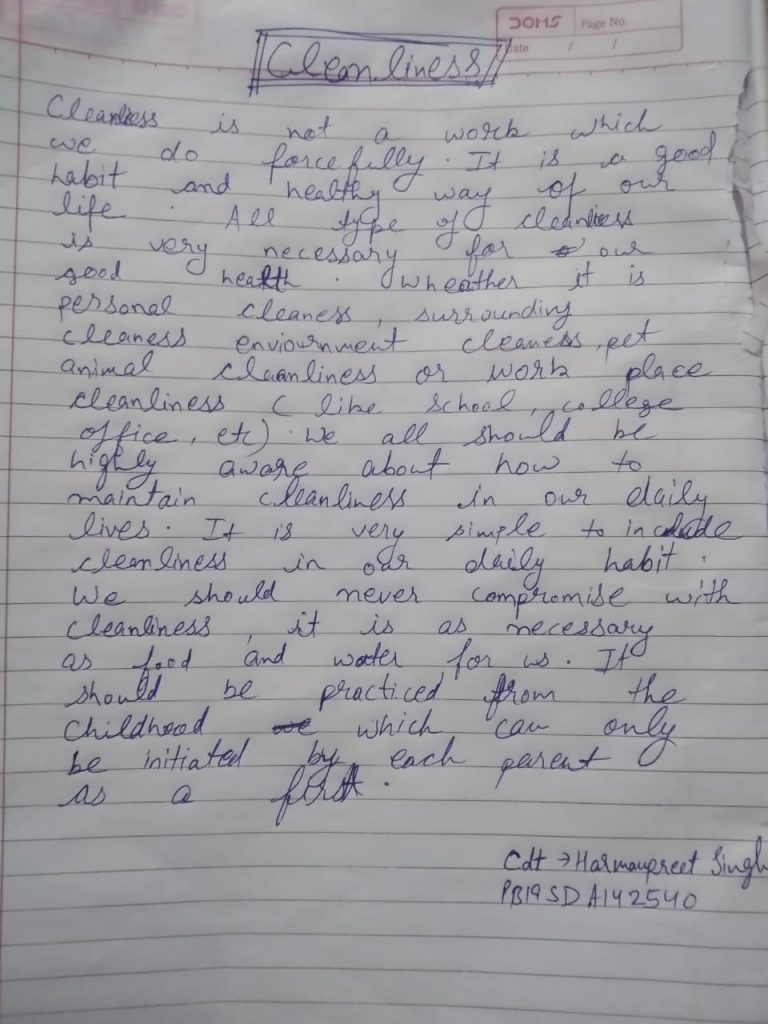 DOMS Page No.
Date / /
Cleanliness
Cleanliess is not a work which
we do forcefully. It is a good
habit and healthy way of our
life. All type of cleanliess
is very necessary for our
good health. Wheather it is
personal cleaness, surrounding
cleaness enviournment cleaness, pet
animal claanliness or work place
cleanliness (like school, college
office, etc). We all should be
highly aware about how to
maintain cleanliness in our daily
lives. It is very simple to include
cleanliness in our daily habit.
We should never compromise with
cleanliness, it is as necessary
as food and water for us. It
should be practiced from the
childhood which can only
be initiated by each parent
as a first.
Cdt → Harmanpreet Singh
PB19SDA142540